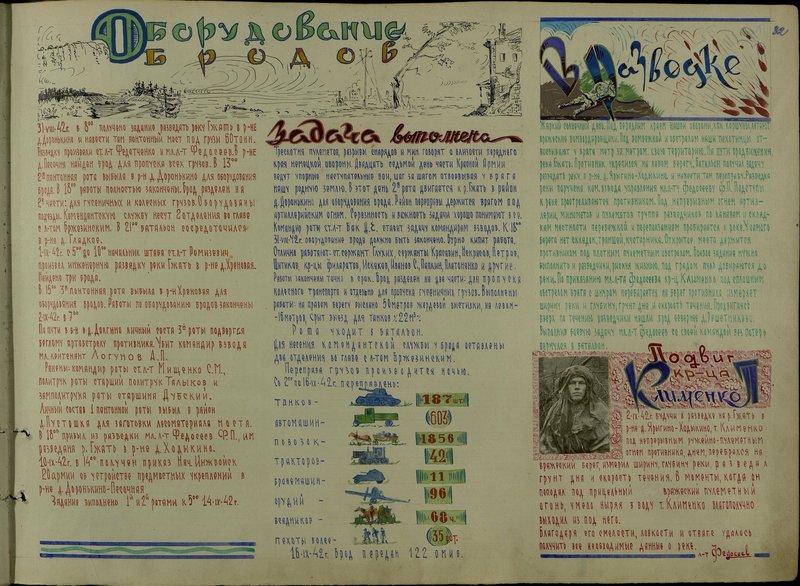 Оборудование
бродов
31-VIII-42г. в 8⁰⁰ получено задание разведать реку Гжать в р-не
д.Доронькино и навести там понтонный мост под грузы 60 тонн.
Разведку произвели ст.л-т Федотченко и мл.л-т Федосеев, в р-не
д.Песочная найден брод для пропуска всех грузов. В 13⁰⁰
2ª понтонная рота выбыла в р-н д.Доронькино для оборудования
брода. В 18⁰⁰ работы полностью закончены. Брод разделен на
2ª части: для гусеничных и колесных грузов. Оборудованы
подходы. Комендантскую службу несут 2 отделения во главе
с ст-том Бржезинским. В 21⁰⁰ батальон сосредоточился
в р-не д.Гладкое.
1-IX-42г. с 5⁰⁰ до 10⁰⁰ начальник штаба ст.л-т
произвел инженерную разведку реки Гжать в р-не д.Хреновая.
Найдено три брода.
В 15⁰⁰ 3ª понтонная рота выбыла в р-н Хреновая для
оборудования бродов. Работы по оборудованию бродов закончены
2-IX-42г. в 7⁰⁰
По пути в р-н в д.Долгино личный состав 3ª роты подвергся
беглому артобстрелу противника. Убит командир взвода
мл.лейтенант Логунов А.П.
Ранены: командир роты ст.л-т Мищенко С.М.,
политрук роты старший политрук Талыков и
замполитрука роты старшина Дубский.
Личный состав 1 понтонной роты выбыл в район
д.Пустошка для заготовки лесоматериала моста.
В 18⁰⁰ прибыл из разведки мл.л-т Федосеев Ф.П., им
разведана р.Гжать в р-не д.Ходыкино.
10-IX-42г. в 14⁰⁰ получен приказ Нач.Инжвойск
20 армии об устройстве предмостных укреплений в
р-не д.Доронькино-Песочная
Задание выполнено 1ª и 2ª ротами к 5⁰⁰ 14-IX-42г.
Задача выполнена
Трескотня пулеметов, разрывы снарядов и мин говорят о близости переднего
края немецкой обороны. Двадцать седьмой день части Красной Армии
ведут упорные наступательные бои, шаг за шагом отвоевывая у врага
нашу родную землю. В этот день 2ª рота двигается к р.Гжать в район
д.Доронькино для оборудования брода. Район переправы держится врагом под
артиллерийским огнем. Серьезность и важность задачи хорошо понимают все.
Командир роты ст.л-т Бак Д.Е. ставит задачу командирам взводов. К 18⁰⁰
31-VIII-42г. оборудование брода должно быть закончено. Бурно кипит работа.
Отлично работают: ст.сержант Глухих, сержанты Красавин, Некрасов, Петров,
Щитиков, кр-цы Филаратов, Исхаков, Иванов С., Павлин, Платоненко и другие.
Работы закончены точно в срок. Брод разделен на две части: для пропуска
колесного транспорта и отдельно для пропуска гусеничных грузов. Выполнены
работы: на правом берегу выслано 50 метров жердевой выстилки, на левом-
-16 метров. Срыт съезд для танков = 22м³.
Рота уходит в батальон.
Для несения комендантской службы у брода оставлены
два отделения во главе с ст-том Бржезинским.
Переправа грузов производится ночью.
Со 2ªª по 16-IX-42г. переправлено:
танков- 187 шт.
автомашин- 603
повозок- 1856
тракторов- 42
бронемашин- 11
орудий- 96
всадников- 68 ч.
пехоты более- 35 рот.
16-IX-42г. брод передан 122 омиб.
32
В разведке
Жаркий солнечный день. Над передним краем нашей обороны, как коршуны, летают
вражеские бомбардировщики.
реки Гжать. Противник укрепился на левом берегу. Батальон получил задачу
разведать реку в р-не д.Яригино-Ходыкино и навести там переправу. Разведка
реки поручена ком.взвода управления мл.л-ту Федосееву Ф.П. Подступы
к реке простреливаются противником. Под непрерывным огнем артил-
лерии, минометов и пулеметов группа разведчиков по канавам и склад-
кам местности перебежкой и переползанием пробирается к реке. У самого
берега нет складок, траншей, кустарника. Открытое место держится
противником под плотным пулеметным обстрелом. Боевое задание нужно
выполнить и разведчики, рискуя жизнью, под градом пуль добираются до
реки. По приказанию мл.л-та Федосеева кр-ц Клименко под сплошным
обстрелом врага с шнуром перебирается на берег противника, измеряет
ширину реки и глубину, грунт дна и скорость течения. Продвигаясь
вверх по течению разведчики нашли брод севернее д.Решетниково.
Выполнив боевую задачу мл.л-т Федосеев со своей командой без потерь
вернулся в батальон.
Подвиг
кр-ца
Клименко П
2-IX-42г. будучи в разведке на р.Гжать в
р-не д.Яригино-Ходыкино, т.Клименко
под непрерывным ружейно-пулеметным
огнем противника, днем, перебрался на
вражеский берег, измерил ширину, глубину реки, разведал
грунт дна и скорость течения. В моменты, когда он
попадал под прицельный вражеский пулеметный
огонь, умело ныряя в воду т.Клименко благополучно
выходил из под него.
Благодаря его смелости, ловкости и отваге удалось
получить все необходимые данные о реке.
л-т Федосеев